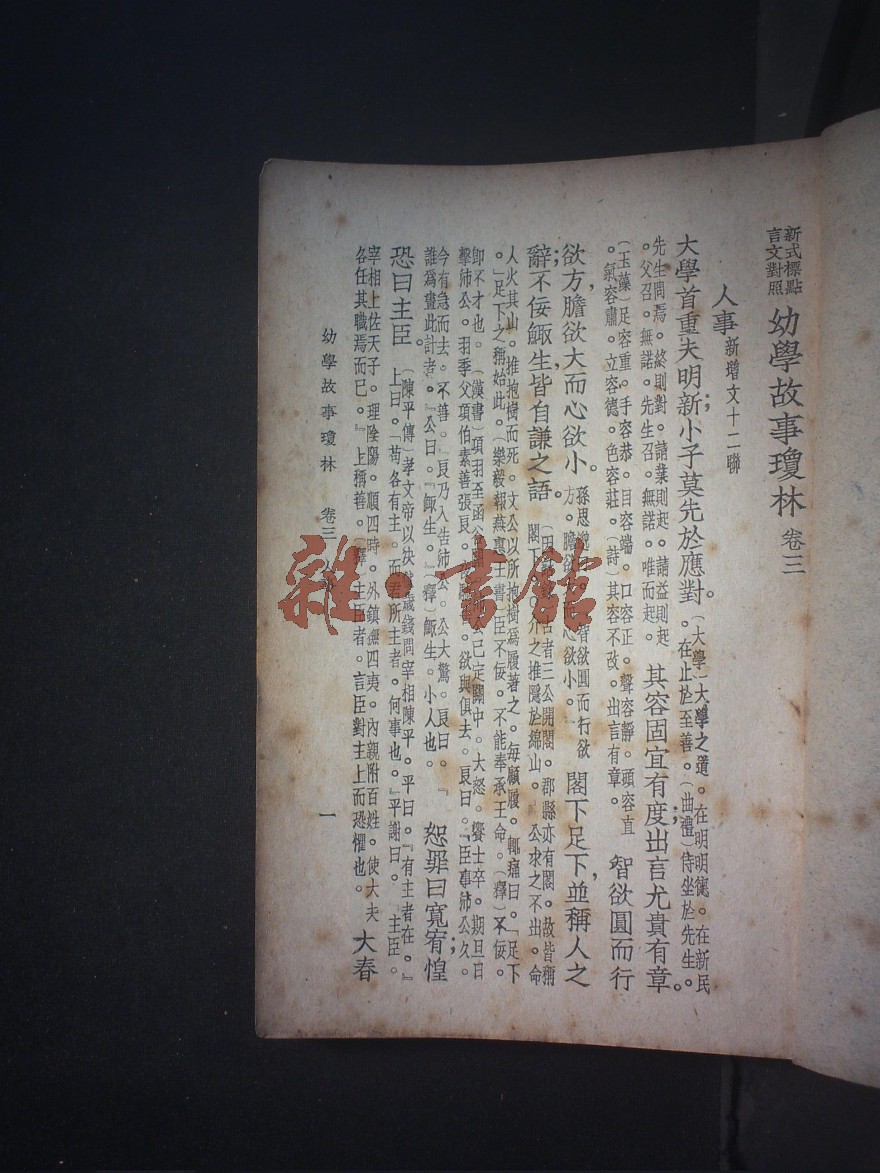 新式標點
言文對照
幼學故事瓊林 卷三
人事 新增文十二聯
大學首重夫明新;小子莫先於應對。
(大學)大學之道。在明明德。在新民
。在止於至善。(曲禮)侍坐於先生。
先生問焉。終則對。請業則起。請益則起
。父召。無諾。先生召。無諾。唯而起。
其容固宜有度;出言尤貴有章。
(玉藻)足容重。手容恭。目容端。口容正。聲容靜。頭容直
。氣容肅。立容德。色容莊。(詩)其容不改。出言有章。
智欲圓而行
欲方,膽欲大而心欲小。
孫思邈 智欲圓而行欲
方。膽欲 心欲小。
閣下足下,並稱人之
辭;不佞鯫生,皆自謙之語。
古者三公開閣。郡縣亦有閣。故皆稱
閣下 介之推隱於綿山。公求之不出。命
人火其山。推抱樹而死。文公以所抱樹爲履著之。每顧履。輒痛曰。「足下
。」足下之稱始此。(樂毅報燕惠王書)臣不佞。不能奉承王命。(釋)不佞。
卽不才也。(漢書)項羽至函谷關 已定關中。大怒。饗士卒。期旦日
擊沛公。羽季父項伯素善張良。 欲與俱去。良曰。「臣事沛公久。
今有急而去。不善。」良乃入告沛公。公大驚。良曰。『
誰爲畫此計者。』公曰。『鯫生。』(釋)鯫生。小人也。
恕罪曰寬宥;惶
恐曰主臣。
(陳平傳)孝文帝以決 歲錢問宰相陳平。平曰。『有主者在。』
上曰。『苟各有主。而君所主者。何事也。』平謝曰。『主臣。
宰相上佐天子。理陰陽。順四時。外鎮撫四夷。內親附百姓。使大夫
各任其職焉而已。』上稱善。(釋)主臣者。言臣對主上而恐懼也。
大春
幼學故事瓊林 卷三 一
雜·書館